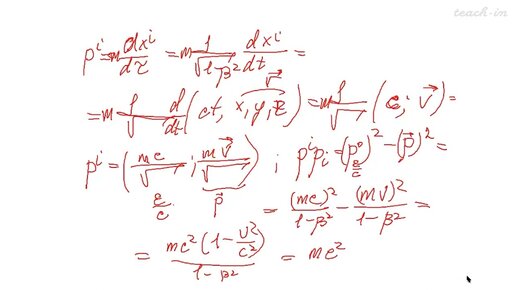 teach-in
p^i = m dx^i/dτ = m 1/√(1-β²) dx^i/dt =
= m 1/√ d/dt (ct, x, y, z) = m 1/√ (c; v⃗) =
v⃗
p^i = (mc/√ ; mv⃗/√) ; p^i p_i = (p⁰)² - (p⃗)² =
ε/c p⃗ ε/c
= (mc)²/(1-β²) - (mv)²/(1-β²) =
= mc²(1-v²/c²)/(1-β²) = mc²